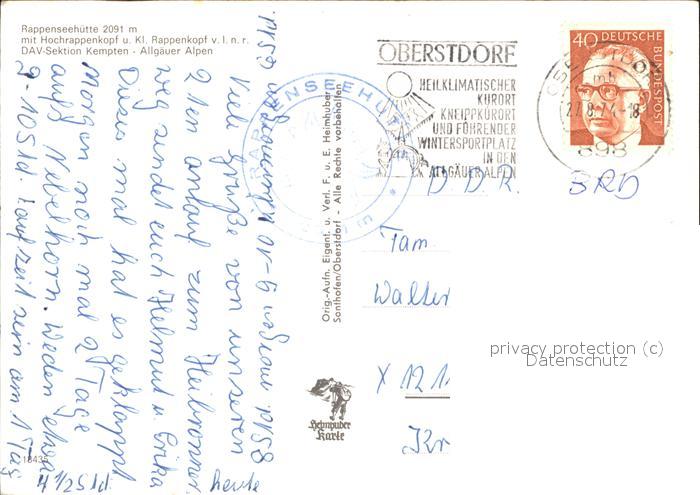 Rappenseehütte 2091 m
mit Hochrappenkopf u. Kl. Rappenkopf v. l. n. r.
DAV-Sektion Kempten - Allgäuer Alpen
Viele Grüße von unseren
2ten anlauf zum Heilbronner
weg sendet euch Helmut u Erika
Dieses mal hat es geklappt
Morgen noch mal 2 Tage
aufs Nebelhorn. Werden etwa
9-10 Std. Laufzeit sein am 1 Tag
heute
4 1/2 Std.
18435
RAPPENSEEHÜTTE
Orig.-Aufn. Eigent. u. Verl. F. u. E. Heimhuber
Sonthofen/Oberstdorf - Alle Rechte vorbehalten
Heimhuber
Karte
OBERSTDORF
HEILKLIMATISCHER
KURORT
KNEIPPKURORT
UND FÜHRENDER
WINTERSPORTPLATZ
IN DEN
ALLGÄUER ALPEN
40 DEUTSCHE
BUNDESPOST
OBERSTDORF
mb
27.8.74-18
898
D. D. R.
BRD
Fam.
Walter
X 121
privacy protection (c)
Datenschutz